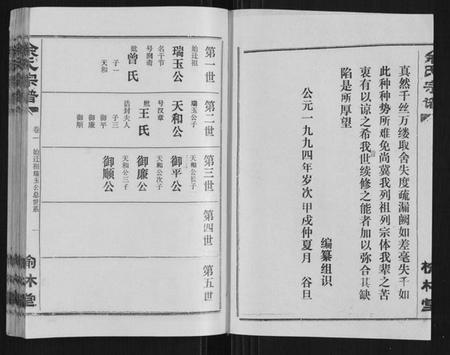 真然千丝万缕取舍失度疏漏阙如差毫失千如
此种种势所难免尚冀我列祖列宗体我辈之苦
衷有以谅之希我世续修之能者加以弥合其缺
陷是所厚望
公元一九九四年岁次甲戌仲夏月 谷旦
编纂组识
余氏宗谱
榆林堂
第一世
始迁祖
瑞玉公
名干节
妣曾氏
子一
天和
第二世
瑞玉公子
天和公
号汉章
妣王氏
诰封夫人
子三
御平
御廉
御顺
第三世
天和公长子
御平公
天和公次子
御廉公
天和公三子
御顺公
第四世
第五世
余氏宗谱
卷一
始迁祖瑞玉公总世系
一
榆林堂